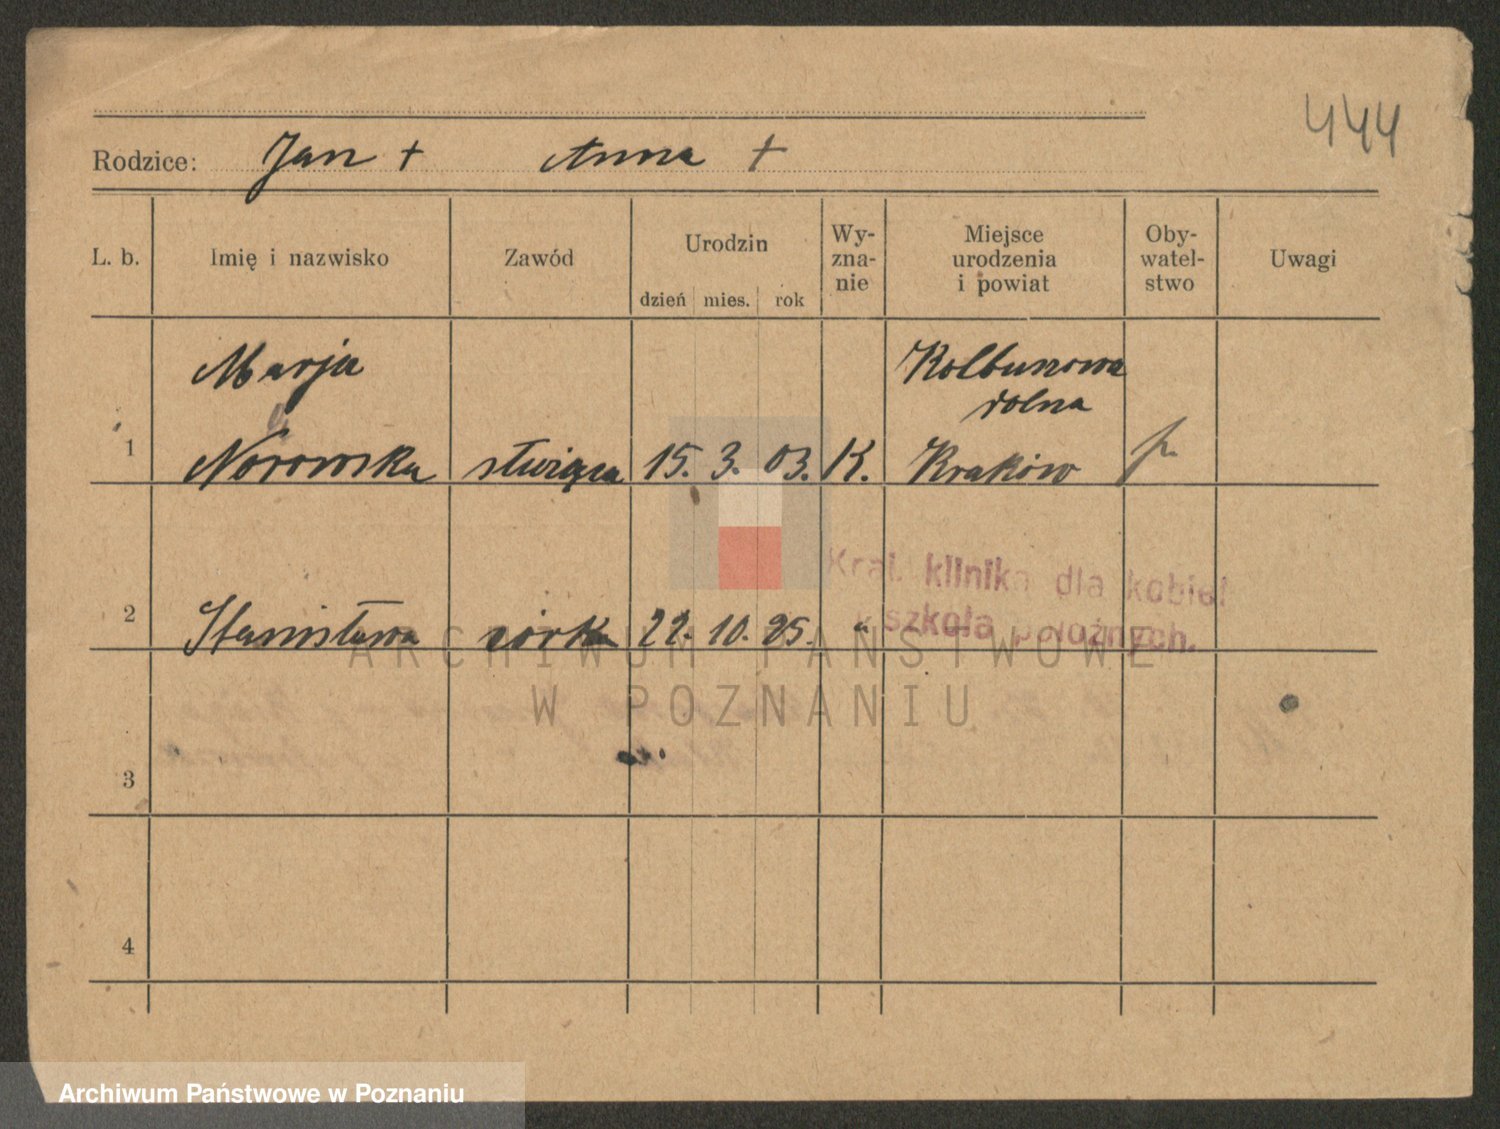 444
Rodzice: Jan + Anna +
L. b. Imię i nazwisko Zawód Urodzin dzień mies. rok Wy-zna-nie Miejsce urodzenia i powiat Oby-watel-stwo Uwagi
Marja Kolbuszowa
dolna
1 Norowska służąca 15. 3. 03. K. Kraków p.
Kraj. klinika dla kobiet
2 Stanisława córka 22. 10. 25. "
szkoła położnych.
ARCHIWUM PAŃSTWOWE
W POZNANIU
3
4
Archiwum Państwowe w Poznaniu